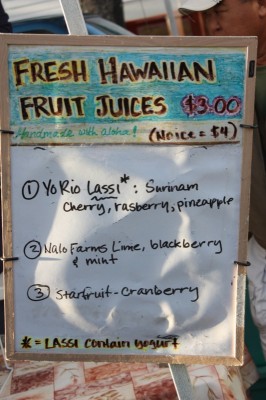 FRESH HAWAIIAN
FRUIT JUICES $3.00
Handmade with aloha! (No ice = $4)
① YoRio Lassi*: Surinam
Cherry, rasberry, pineapple
② Nalo Farms Lime, blackberry
& mint
③ Starfruit-Cranberry
* = LASSI contain yogurt